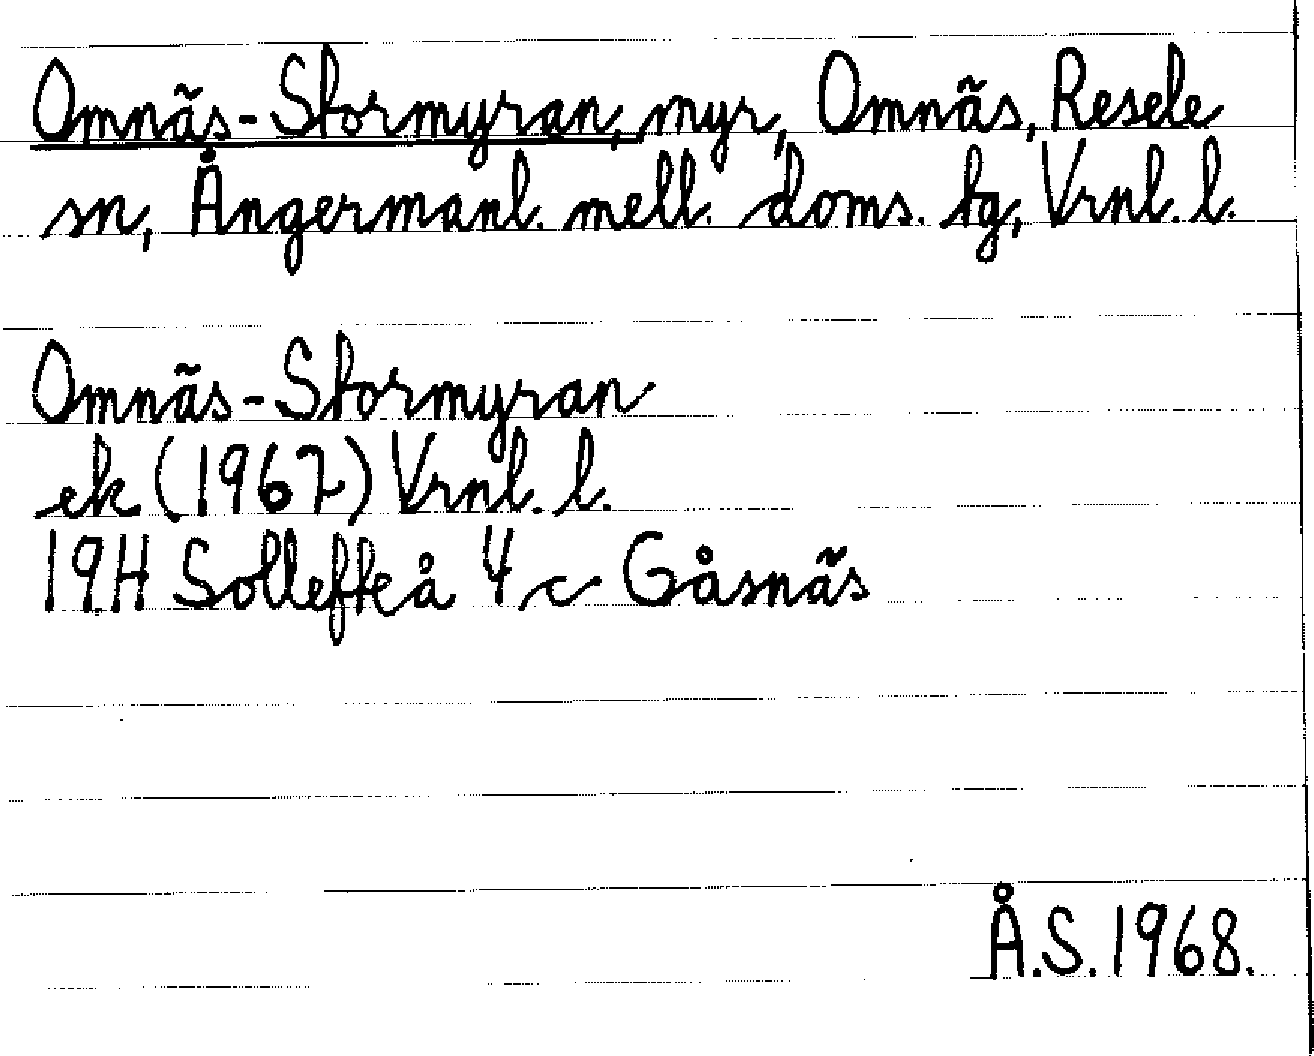 Omnäs-Stormyran, myr, Omnäs, Resele
sn, Ångermanl. mell. doms. tg, Vrnl. l.
Omnäs-Stormyran
ek (1967) Vrnl. l.
19H Sollefteå 4 c Gåsnäs
Å.S. 1968.